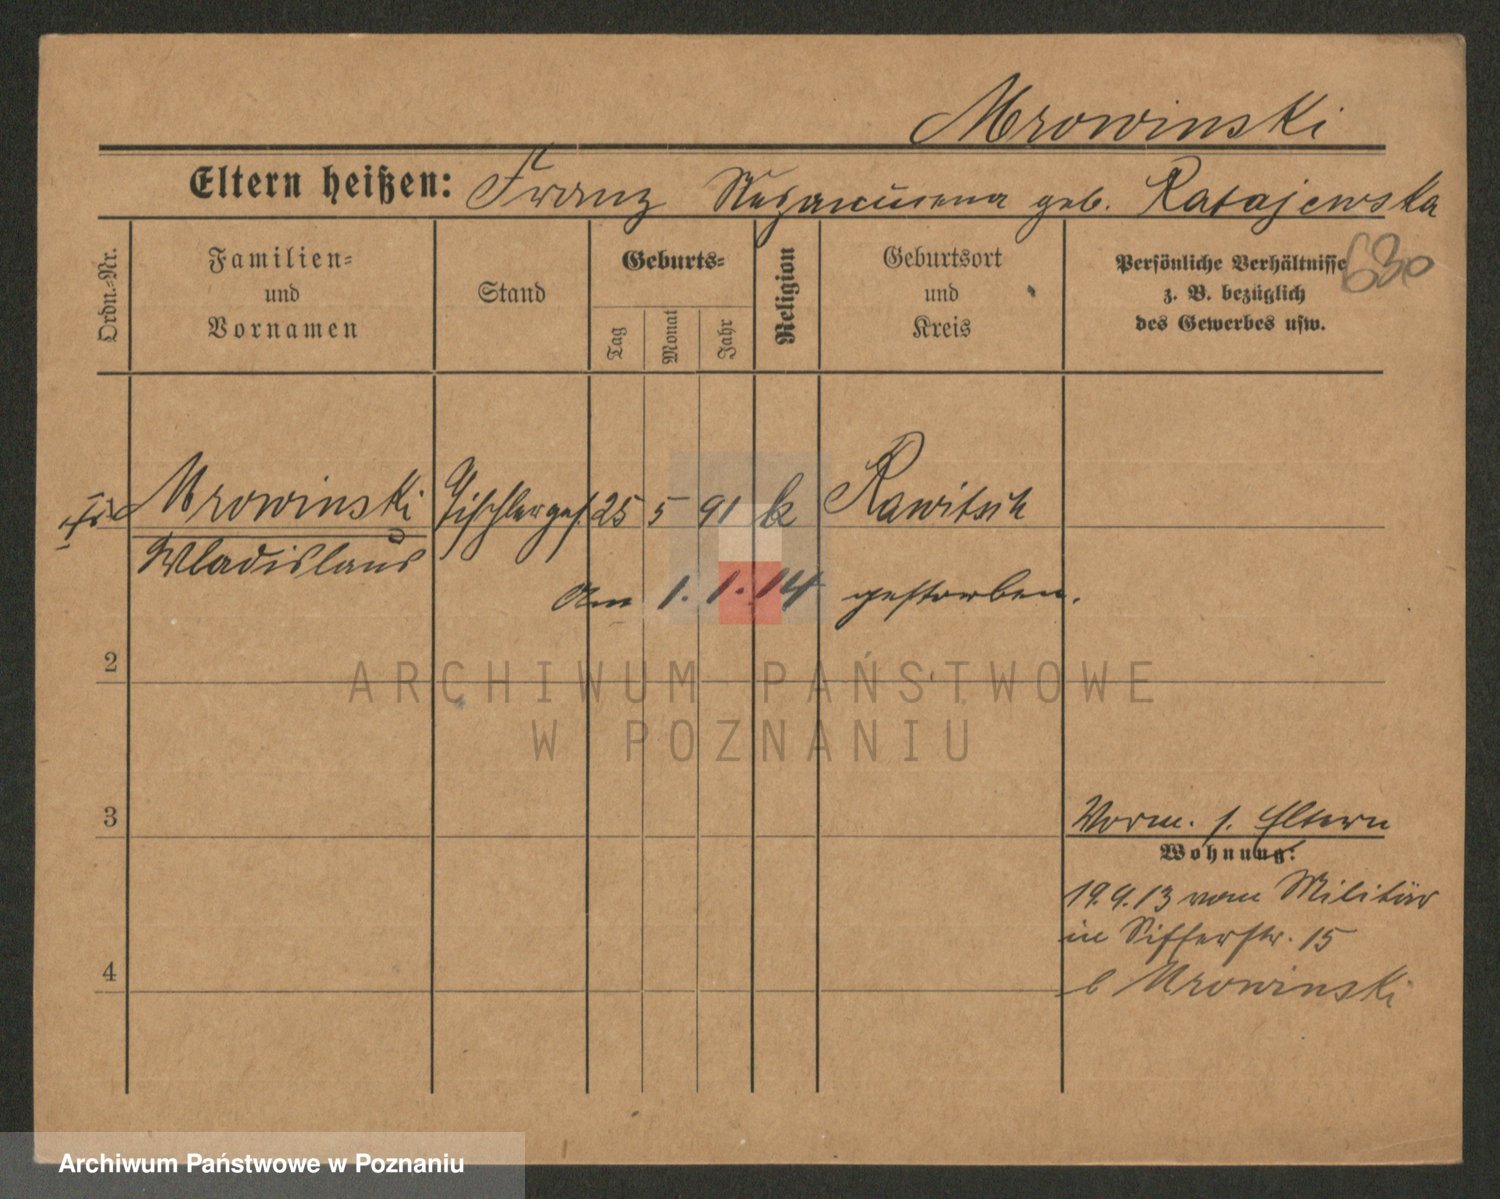 Mrowinski
Eltern heißen: Franz geb. Ratajewska
630
Ordn.-Nr.
Familien-
und
Vornamen
Stand
Geburts-
Tag
Monat
Jahr
Religion
Geburtsort
und
Kreis
Persönliche Verhältnisse
z. B. bezüglich
des Gewerbes usw.
Mrowinski Tischlerges. 25 5 91 k Rawitsch
Wladislaus
Am 1.1.14 gestorben.
2
ARCHIWUM PAŃSTWOWE
W POZNANIU
3
Vorm. s. Eltern
Wohnung:
19.9.13 vom Militär
in 15
4
b Mrowinski
Archiwum Państwowe w Poznaniu